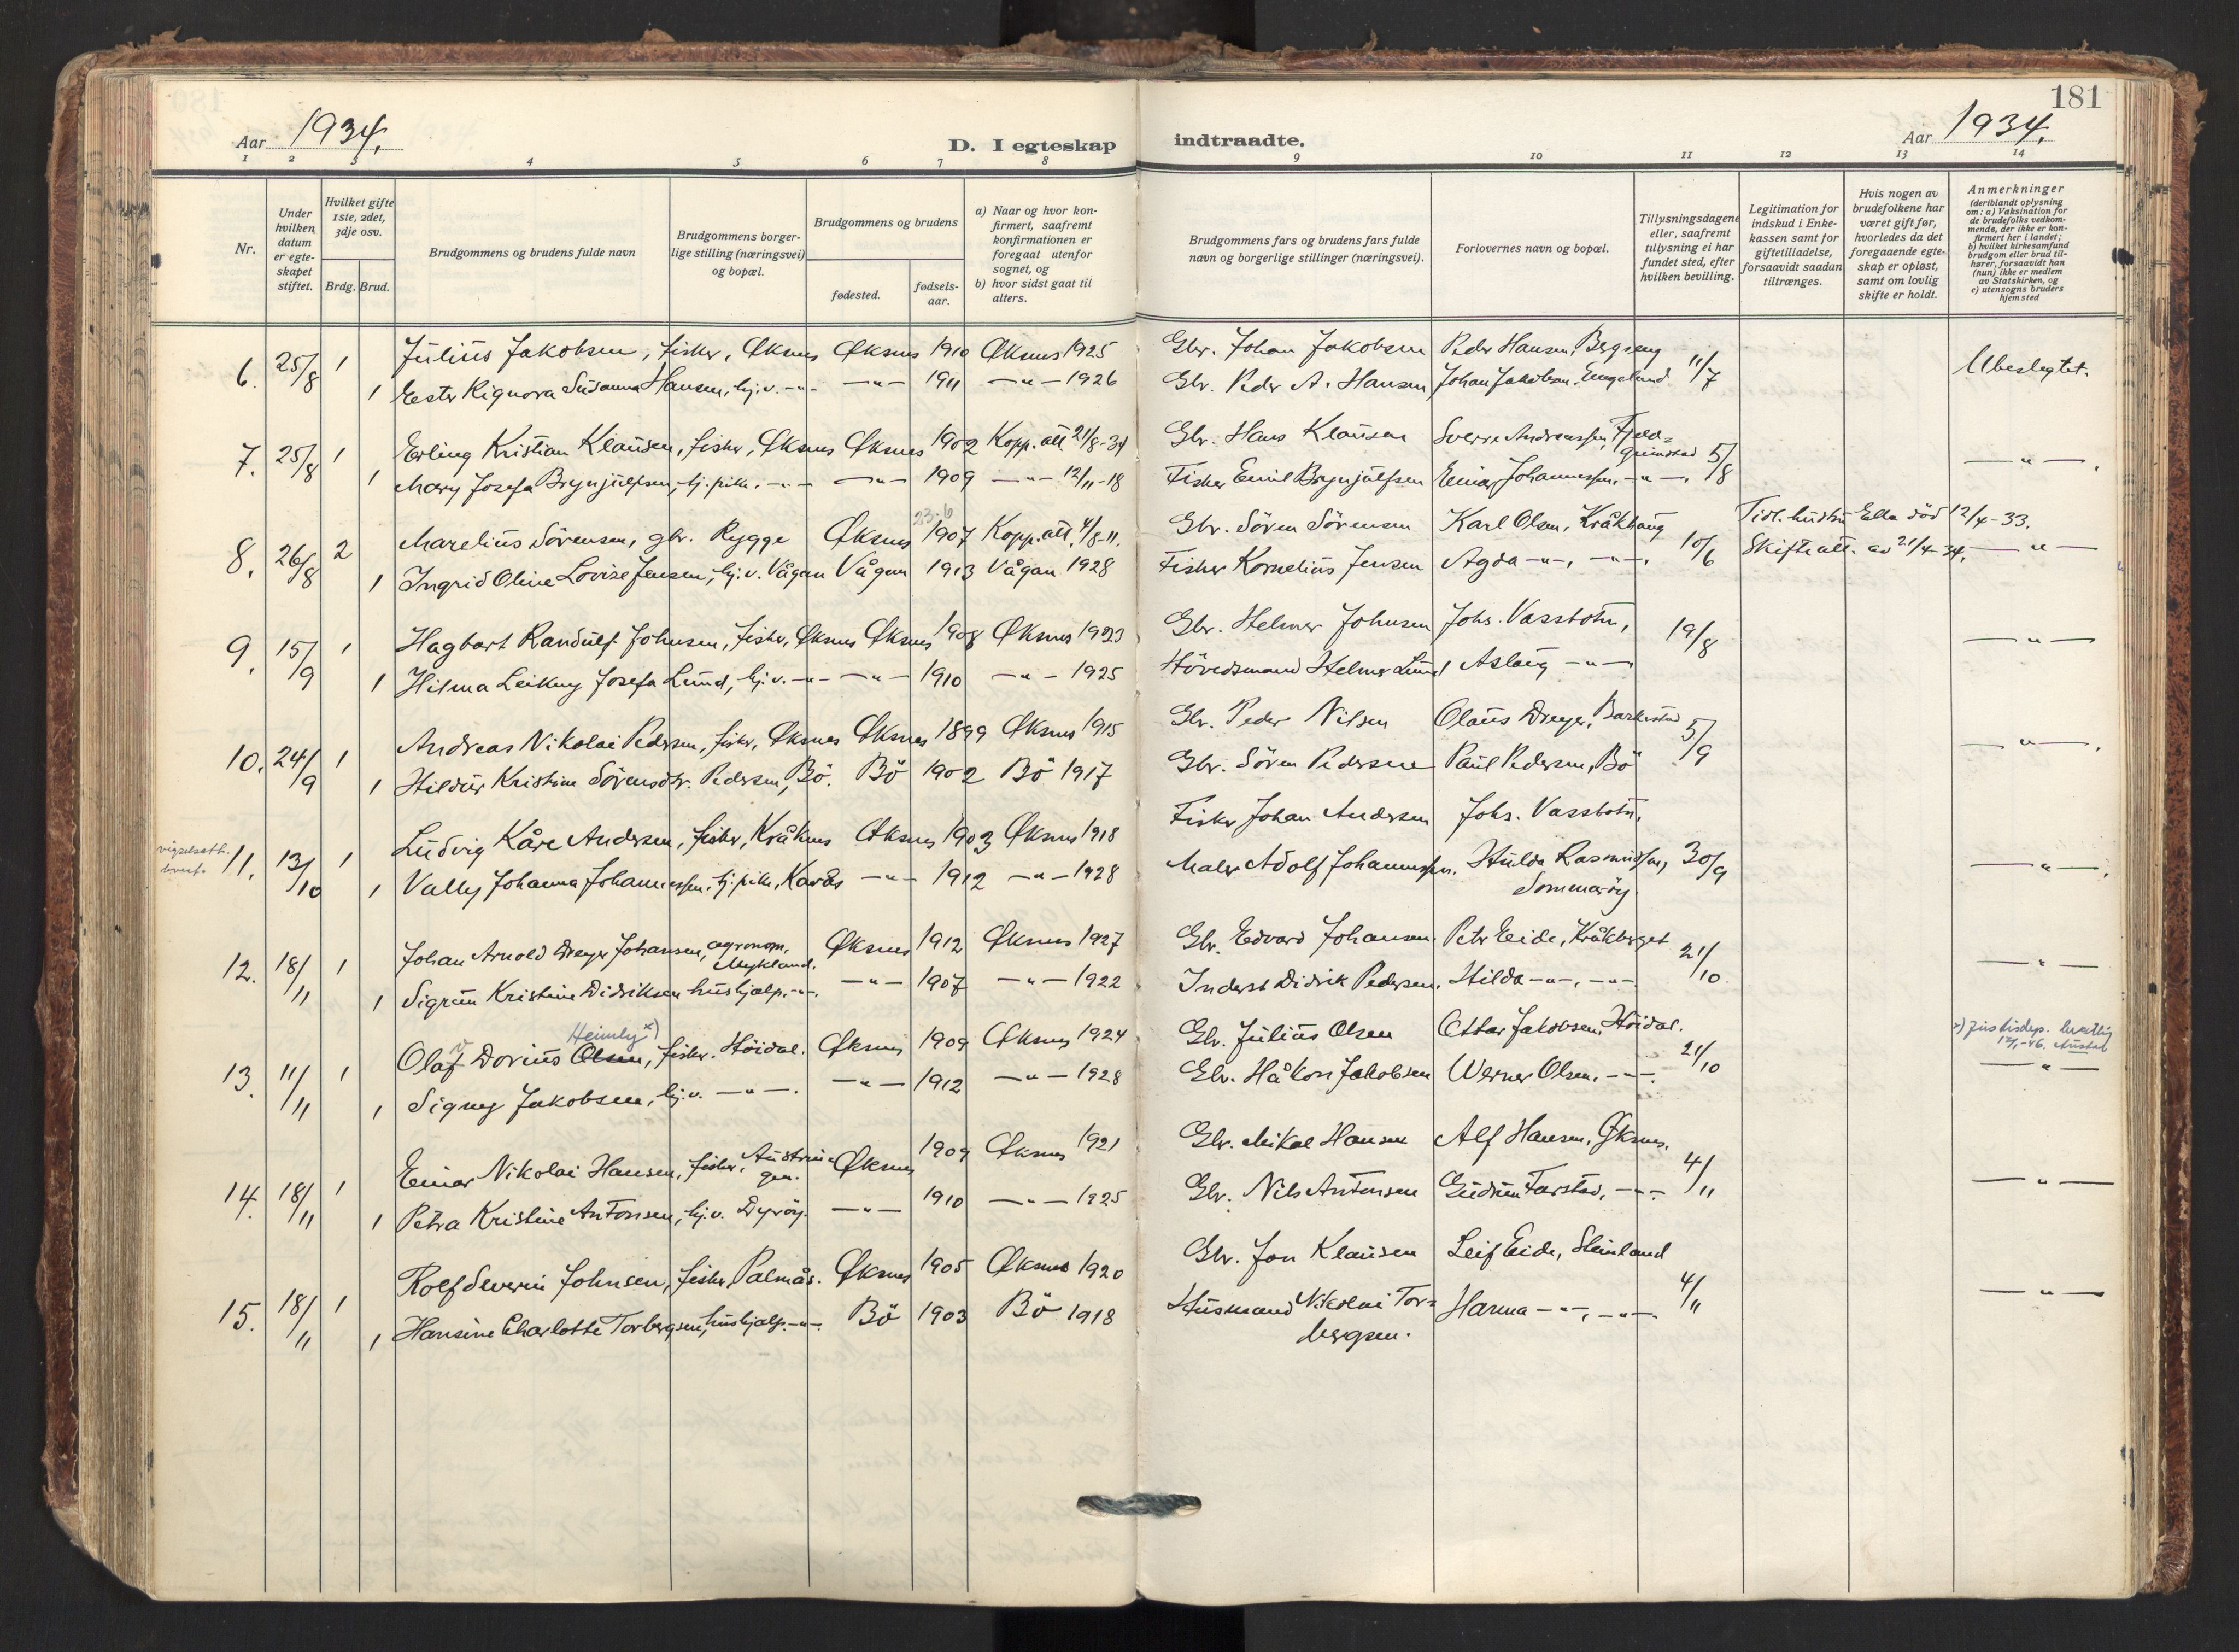 181
Aar 1934.
D. I egteskap indtraadte.
Aar 1934.
1 2 3 4 5 6 7 8 9 10 11 12 13 14
Nr.
Under hvilken datum er egte-skapet stiftet.
Hvilket gifte 1ste, 2det, 3dje osv.
Brdg. Brud.
Brudgommens og brudens fulde navn
Brudgommens borger-lige stilling (næringsvei) og bopæl.
Brudgommens og brudens
fødested.
fødsels-aar.
a) Naar og hvor kon-firmert, saafremt konfirmationen er foregaat utenfor sognet, og
b) hvor sidst gaat til alters.
Brudgommens fars og brudens fars fulde navn og borgerlige stillinger (næringsvei).
Forlovernes navn og bopæl.
Tillysningsdagene eller, saafremt tillysning ei har fundet sted, efter hvilken bevilling.
Legitimation for indskud i Enke-kassen samt for giftetilladelse, forsaavidt saadan tiltrænges.
Hvis nogen av brudefolkene har været gift før, hvorledes da det foregaaende egte-skap er opløst, samt om lovlig skifte er holdt.
Anmerkninger (deriblandt oplysning om: a) Vaksination for de brudefolks vedkom-mende, der ikke er kon-firmert her i landet; b) hvilket kirkesamfund brudgom eller brud til-hører, forsaavidt han (hun) ikke er medlem av Statskirken, og c) utensogns bruders hjemsted
6. 25/8 1 Julius Jakobsen, fisker, Øksnes Øksnes 1910 Øksnes 1925 Gbr. Johan Jakobsen Peder Hansen, Bergseng 11/7 Ubeslegtet.
1 Ester Rignora Susanna Hansen, hj.v. -"- -"- 1911 -"- 1926 Gbr. Peder A. Hansen Johan Jakobsen, Engelund
7. 25/8 1 Erling Kristian Klausen, fisker, Øksnes Øksnes 1902 Kopp.att. 21/8-34 Gbr. Hans Klausen Sverre Andreassen, Fjeld=grunstad 5/8 -"-.
1 Mary Josefa Brynjulfsen, hj.pike. -"- -"- 1909 -"- 12/11-18 Fisker Emil Brynjulfsen Einar Johannessen, -"-.
8. 26/8 2 Marelius Sörensen, gbr. Rygge Øksnes 23.6 1907 Kopp.att. 4/8-11. Gbr. Sören Sörensen Karl Olsen, Kråkhaug 10/6 Tidl. hustru Ella död 12/4-33.
1 Ingrid Oline Lovise Jensen, hj.v. Vågan Vågan 1913 Vågan 1928 Fisker Kornelius Jensen Agda -"-, -"-. Skifteatt. av 21/4-34. -"-
9. 15/9 1 Hagbart Randulf Johnsen, fisker, Øksnes Øksnes 1908 Øksnes 1923 Gbr. Helmer Johnsen Johs. Vassbotn, 19/8 -"-
1 Hilma Leikny Josefa Lund, hj.v. -"- -"- 1910 -"- 1925 Hövedsmand Helmer Lund Aslaug -"-
10. 24/9 1 Andreas Nikolai Pedersen, fisker, Øksnes Øksnes 1899 Øksnes 1915 Gbr. Peder Nilsen Olaus Dreyer, Barkestad 5/9 -"-.
1 Hildur Kristine Sörensdtr. Pedersen, Bö. Bö 1902 Bö 1917 Gbr. Sören Pedersen Paul Pedersen, Bö
vigselsatt.
11. 13/10 1 Ludvig Kåre Andersen, fisker, Kråknes Øksnes 1903 Øksnes 1918 Fisker Johan Andersen Johs. Vassbotn, 30/9 -"-.
1 Vally Johanna Johannessen, hj.pike, Kavås -"- 1912 -"- 1928 Maler Adolf Johannessen. Hulda Rasmussen, Sommaröy.
12. 18/11 1 Johan Arnold Dreyer Johansen, agronom, Mykland. Øksnes 1912 Øksnes 1927 Gbr. Edvard Johansen. Petr Eide, Kråkberget 21/10 -"-
1 Sigrun Kristine Didriksen hushjelp. -"-. -"- 1907 -"- 1922 Inderst Didrik Pedersen. Hilda -"-, -"-
Heimly x)
13. 11/11 1 Olaf Dorius Olsen, fisker. Höidal. Øksnes 1909 Øksnes 1924 Gbr. Julius Olsen Ottar Jakobsen, Höidal. 21/10 x) Justisdep.
1 Signy Jakobsen, hj.v. -"-. -"- 1912 -"- 1928 Gbr. Håkon Jakobsen Werner Olsen, -"-. -"-
14. 18/11 1 Einar Nikolai Hansen, fisker, Øksnes 1909 Øksnes 1921 Gbr. Mikal Hansen Alf Hansen, Øksnes. 4/11 -"-
1 Petra Kristine Antonsen, hj.v. Dyröy. -"- 1910 -"- 1925 Gbr. Nils Antonsen Gudrun Farstad, -"-
15. 18/11 1 Rolf Severin Johnsen, fisker, Palmås. Øksnes 1905 Øksnes 1920 Gbr. Jon Klausen Leif Eide, Steinland 4/11 -"-
1 Hansine Charlotte Torbergsen, hushjelp. -"-. Bö 1903 Bö 1918 Husmand Nikolai Tor=bergsen. Hanna -"-, -"-